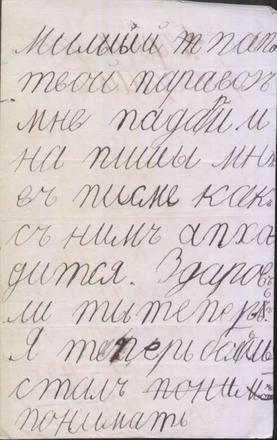 милмый т папа
твой паравозъ
мне падай и
на пишы мнѣ
въ писме какъ
съ нимъ апха
дится. Здаровъ
ли ты теперь.
Я теперь больше
сталъ пони
понимать